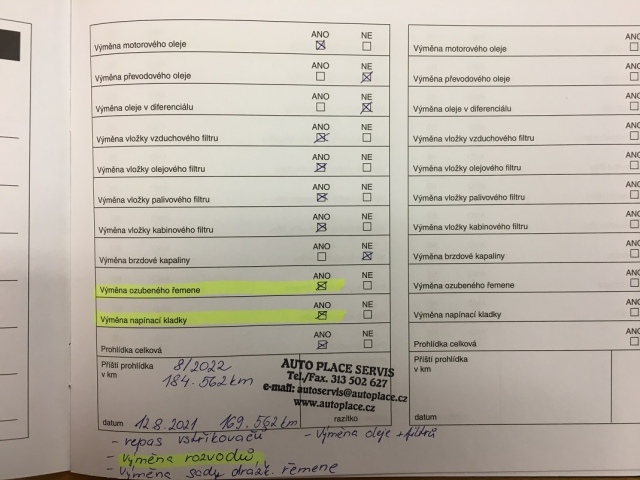 ANO NE
Výměna motorového oleje
ANO NE
Výměna převodového oleje
ANO NE
Výměna oleje v diferenciálu
ANO NE
Výměna vložky vzduchového filtru
ANO NE
Výměna vložky olejového filtru
ANO NE
Výměna vložky palivového filtru
ANO NE
Výměna vložky kabinového filtru
ANO NE
Výměna brzdové kapaliny
ANO NE
Výměna ozubeného řemene
ANO NE
Výměna napínací kladky
ANO NE
Prohlídka celková
Příští prohlídka 8/2022
v km 184.562 km
AUTO PLACE SERVIS
Tel./Fax. 313 502 627
e-mail: autoservis@autoplace.cz
www.autoplace.cz
datum 12.8.2021 169.562 km razítko
- repas vstřikovačů
- výměna oleje + filtrů
- výměna rozvodů,
- výměna sady drážk. řemene
ANO
Výměna motorového oleje
ANO
Výměna převodového oleje
ANO
Výměna oleje v diferenciálu
ANO
Výměna vložky vzduchového filtru
ANO
Výměna vložky olejového filtru
ANO
Výměna vložky palivového filtru
ANO
Výměna vložky kabinového filtru
ANO
Výměna brzdové kapaliny
ANO
Výměna ozubeného řemene
ANO
Výměna napínací kladky
ANO
Prohlídka celková
Příští prohlídka
v km
datum